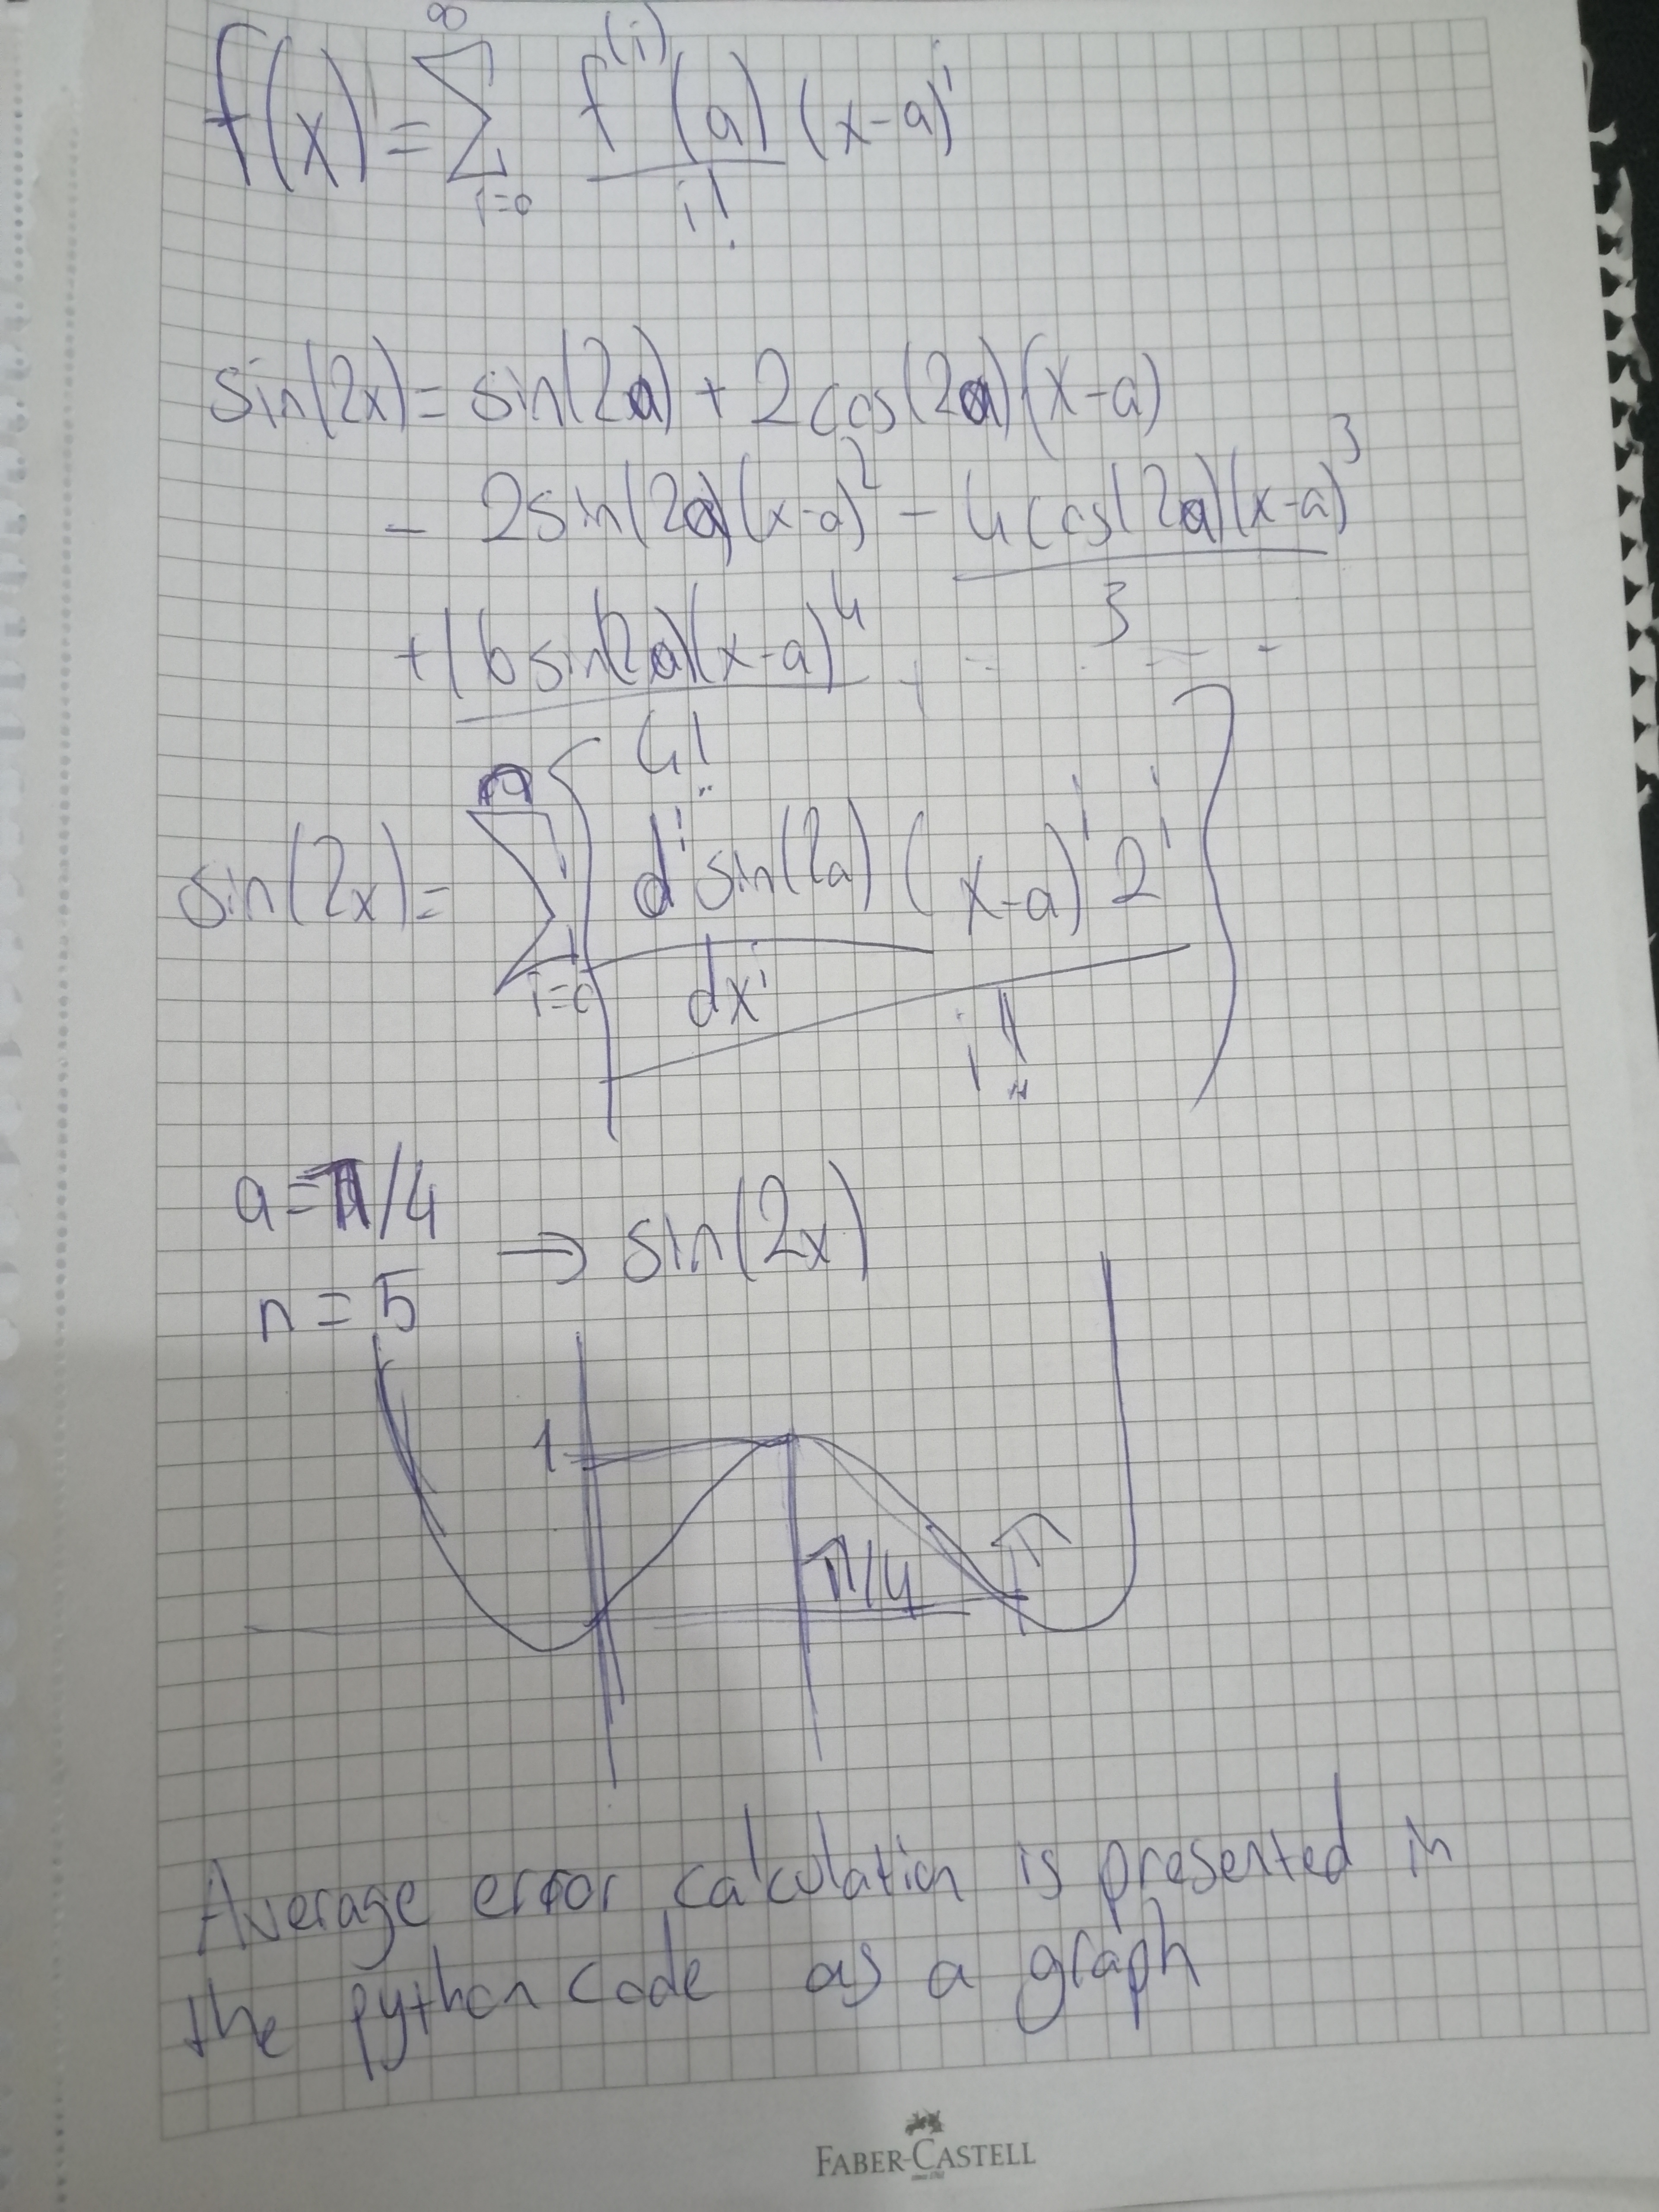 f(x) = ∞ Σ i=0 f^(i)(a)/i! (x-a)^i
sin(2x) = sin(2a) + 2cos(2a)(x-a)
- 2sin(2a)(x-a)^2 - 4cos(2a)(x-a)^3/3
+ 16sin(2a)(x-a)^4/4! + - - - - -
sin(2x) = Σ i=0 { d^i sin(2a)/dx^i (x-a)^i 2^i / i! }
a = π/4
→ sin(2x)
n = 5
1
π/4
π
Average error calculation is presented in
the python code as a graph
FABER-CASTELL
since 1761